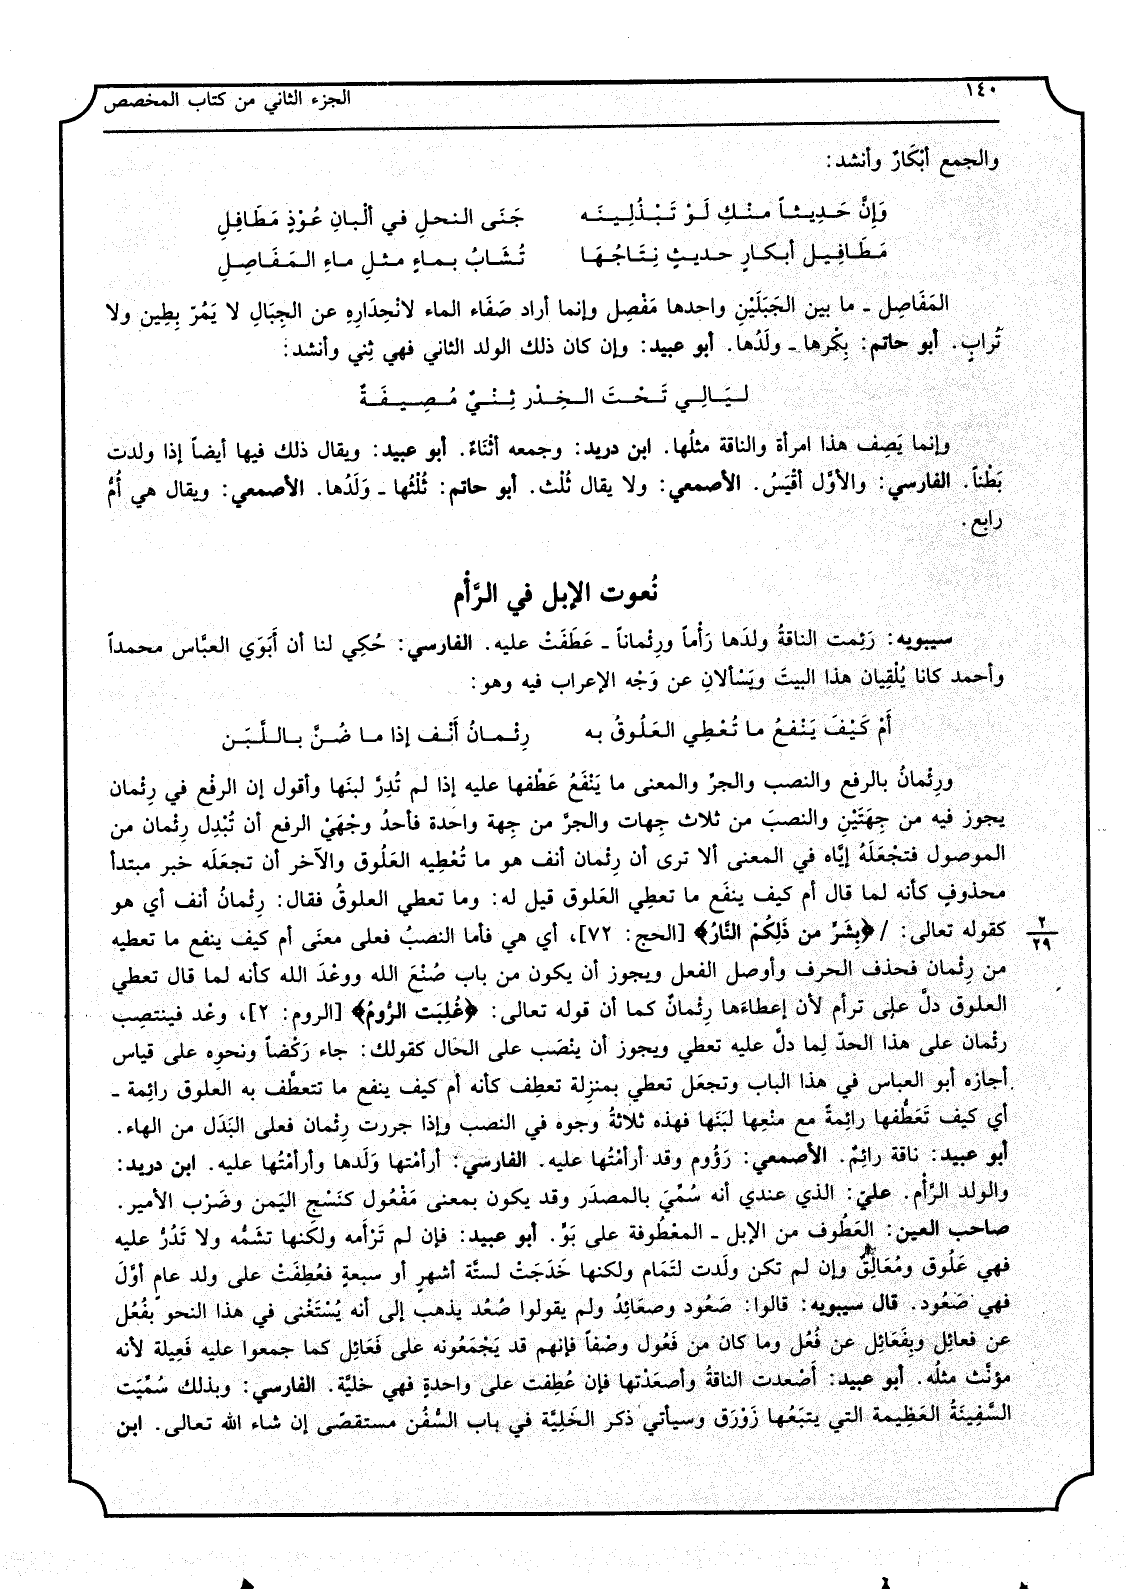 ١٤٠
الجزء الثاني من كتاب المخصص
والجمع أبْكَارٌ وأنشد:
وَإِنَّ حَدِيثاً منْكِ لَوْ تَبْذُلِينَه جَنَى النحلِ في ألْبانِ عُوْذٍ مَطَافِلِ
مَطَافِيل أبكارٍ حديثٍ نِتَاجُهَا تُشَابُ بماءٍ مثلِ ماءِ المَفَاصِلِ
المَفَاصِل ـ ما بين الجَبَلَيْنِ واحدها مَفْصِل وإنما أراد صَفَاء الماء لانْحِدَارِهِ عن الجِبَالِ لا يَمُرّ بِطِين ولا
تُرابٍ. أبو حاتم: بِكْرها ـ ولَدُها. أبو عبيد: وإن كان ذلك الولد الثاني فهي ثِني وأنشد:
ليَالِي تَحْتَ الخِدْر ثِنْيٌ مُصِيفَةٌ
وإنما يَصِف هذا امرأة والناقة مثلُها. ابن دريد: وجمعه أثْنَاءٌ. أبو عبيد: ويقال ذلك فيها أيضاً إذا ولدت
بَطْناً. الفارسي: والأوَّل أقْيَسُ. الأصمعي: ولا يقال ثُلْث. أبو حاتم: ثُلْثُها ـ وَلَدُها. الأصمعي: ويقال هي أُمُّ
رابع.
نُعوت الإبل في الرَّأْم
سيبويه: رَئِمت الناقةُ ولدَها رَأْماً ورِئْماناً ـ عَطَفَتْ عليه. الفارسي: حُكِي لنا أن أَبَوَي العبَّاس محمداً
وأحمد كانا يُلْقِيان هذا البيتَ ويَسْألانِ عن وَجْه الإعراب فيه وهو:
أَمْ كَيْفَ يَنْفعُ ما تُعْطِي العَلُوقُ به رِئْمانُ أَنْف إذا ما ضُنَّ باللَّبَن
ورِئْمانُ بالرفع والنصب والجرِّ والمعنى ما يَنْفَعُ عَطْفها عليه إذا لم تُدِرَّ لبنَها وأقول إن الرفْع في رِئْمان
يجوز فيه من جِهَتَيْنِ والنصبَ من ثلاث جِهات والجرَّ من جِهة واحدة فأحدُ وجْهَيْ الرفع أن تُبْدِل رِئْمان من
الموصول فتجْعَلَهُ إيَّاه في المعنى ألا ترى أن رِئْمان أنف هو ما تُعْطِيه العَلُوق والآخر أن تجعَلَه خبر مبتدأ
محذوفٍ كأنه لما قال أم كيف ينفَع ما تعطِي العَلوق قيل له: وما تعطي العلوقُ فقال: رِئْمانُ أنف أي هو
كقوله تعالى: / ﴿بِشَرٍّ من ذَلِكُمْ النَّارُ﴾ [الحج: ٧٢]، أي هي فأما النصبُ فعلى معنَى أم كيف ينفع ما تعطيه
٢
٢٩
من رِئْمان فحذف الحرف وأوصل الفعل ويجوز أن يكون من باب صُنْعَ الله ووعْدَ الله كأنه لما قال تعطي
العلوق دلَّ على ترأم لأن إعطاءَها رِئْمانٌ كما أن قوله تعالى: ﴿غُلِبَت الرُّومُ﴾ [الروم: ٢]، وعْد فينتصِب
رئْمان على هذا الحدّ لِما دلَّ عليه تعطي ويجوز أن ينْصَب على الحَال كقولك: جاء رَكْضاً ونحوِه على قياس
أجازه أبو العباس في هذا الباب وتجعَل تعطي بمنزلة تعطِف كأنه أم كيف ينفع ما تتعطَّف به العلوق رائِمة ـ
أي كيف تَعَطُّفها رائِمةً مع منْعِها لبَنَها فهذه ثلاثةُ وجوه في النصب وإذا جررت رِئْمان فعلى البَدَل من الهاء.
أبو عبيد: ناقة رائِمٌ. الأصمعي: رَؤُوم وقد أرأمْتُها عليه. الفارسي: أرأمْتها وَلَدها وأرأمْتُها عليه. ابن دريد:
والولد الرَّأْم. علي: الذي عندي أنه سُمِّيَ بالمصدَر وقد يكون بمعنى مَفْعُول كنَسْجِ اليَمن وضَرْب الأمير.
صاحب العين: العَطُوف من الإبل ـ المعْطُوفة على بَوٍّ. أبو عبيد: فإن لم تَرْأَمه ولكنها تشَمُّه ولا تَدُرُّ عليه
فهي عَلُوق ومُعَالِقٌ وإن لم تكن ولَدت لتَمَام ولكنها خَدَجَتْ لستَّة أشهرٍ أو سبعةٍ فعُطِفَتْ على ولد عامِ أوَّلَ
فهي صَعُود. قال سيبويه: قالوا: صَعُود وصعَائِدُ ولم يقولوا صُعُد يذهب إلى أنه يُسْتَغْنى في هذا النحو بفُعُل
عن فعائِل وبِفَعَائِل عن فُعُل وما كان من فَعُول وصْفاً فإنهم قد يَجْمَعُونه على فَعَائِل كما جمعوا عليه فَعِيلة لأنه
مؤنَّث مثلُه. أبو عبيد: أَصْعدت الناقةُ وأصعَدْتها فإن عُطِفت على واحدةٍ فهي خليَّة. الفارسي: وبذلك سُمِّيَت
السَّفِينَةُ العَظِيمة التي يتبَعُها زَوْرَق وسيأتي ذكر الخَلِيَّة في باب السُّفُن مستقصًى إن شاء الله تعالى. ابن